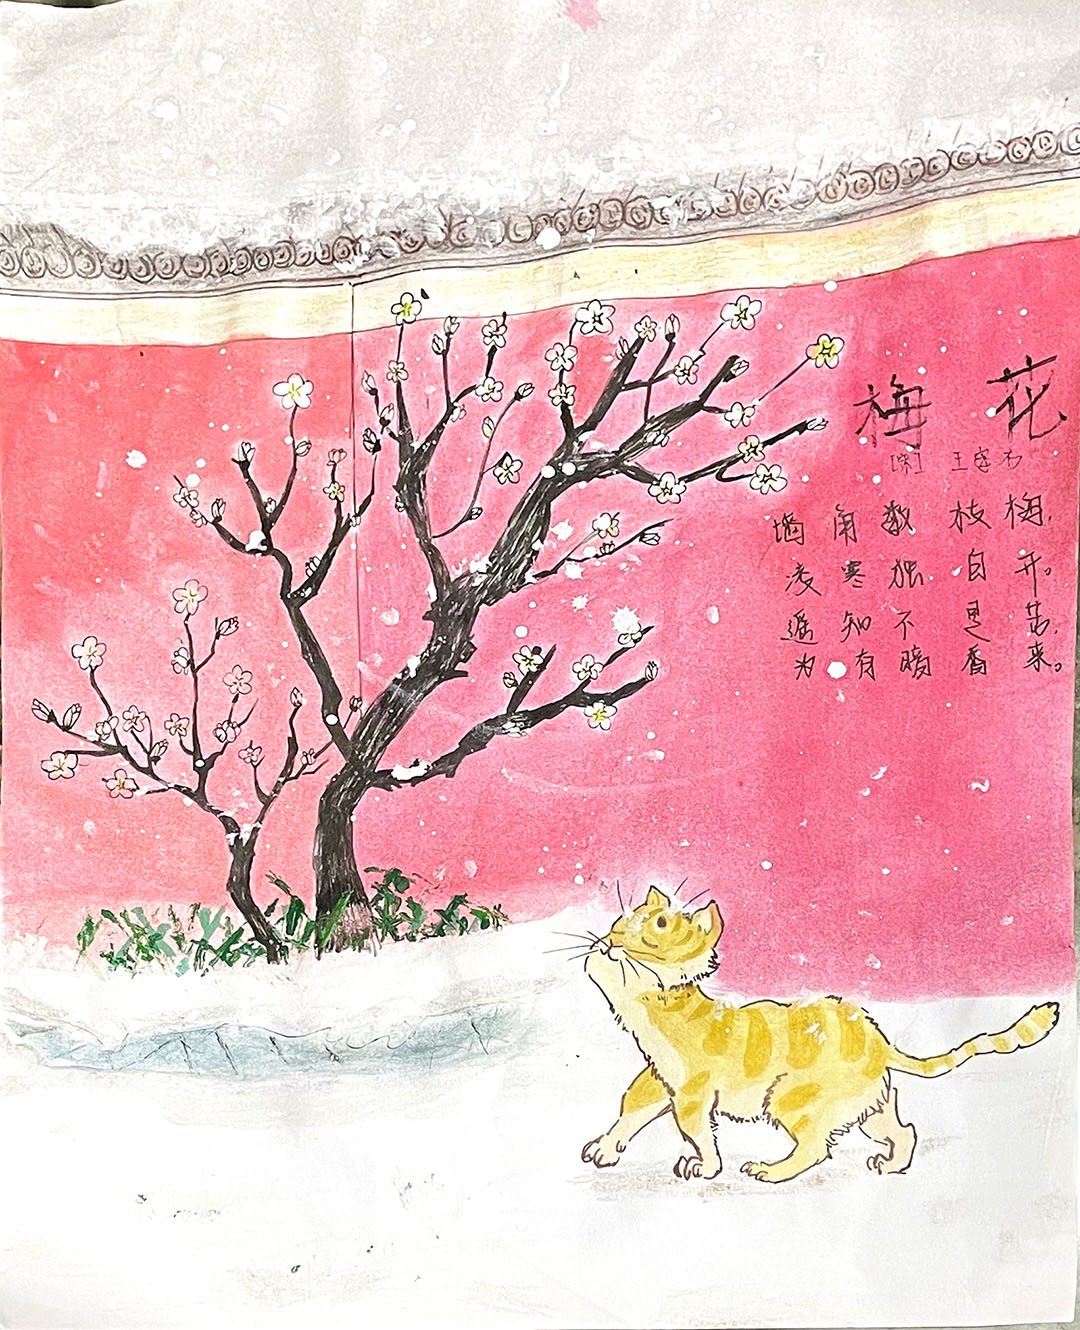 梅 花
[宋] 王安石
墙角数枝梅,
凌寒独自开。
遥知不是雪,
为有暗香来。